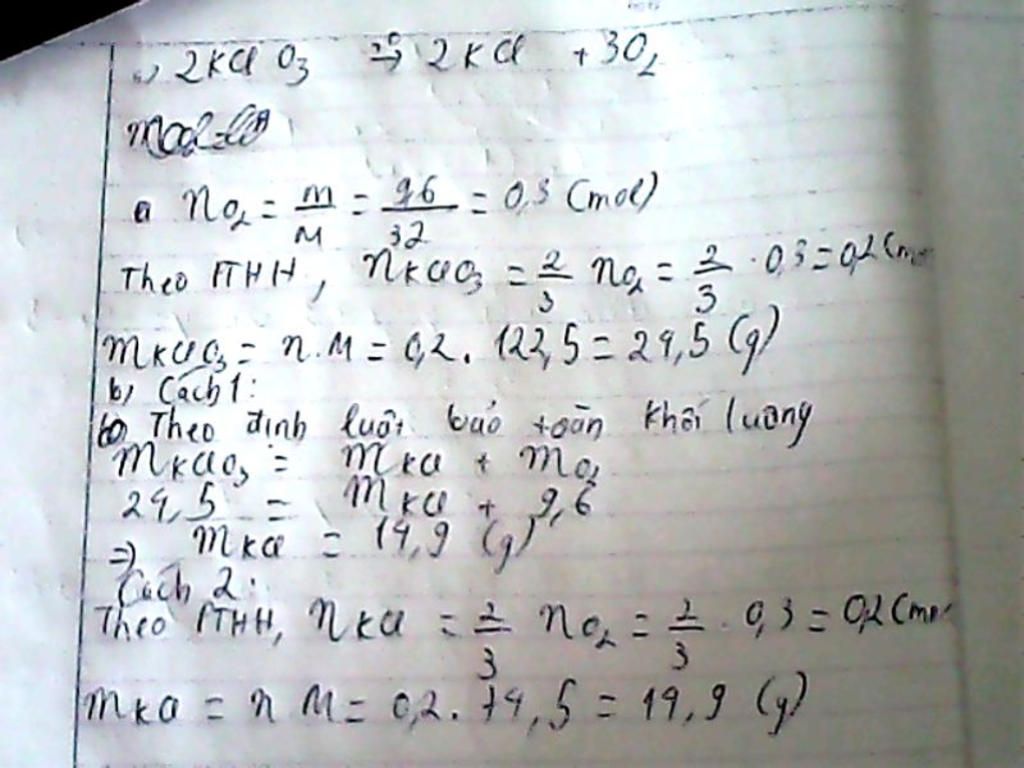 2KClO₃ →(t°) 2KCl + 3O₂
a nO₂ = m/M = 9,6/32 = 0,3 (mol)
Theo PTHH, nKClO₃ = 2/3 nO₂ = 2/3 . 0,3 = 0,2 (mol
mKClO₃ = n.M = 0,2. 122,5 = 24,5 (g)
b) Cách 1:
Theo định luật bảo toàn khối lượng
mKClO₃ = mKCl + mO₂
24,5 = mKCl + 9,6
=> mKCl = 14,9 (g)
Cách 2:
Theo PTHH, nKCl = 2/3 nO₂ = 2/3 . 0,3 = 0,2 (mol
mKCl = n M = 0,2. 74,5 = 14,9 (g)